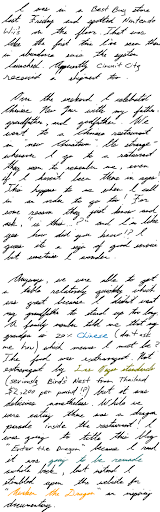 I was in a Best Buy store
last Tuesday and spotted Nintendo
Wii's on the floor. That was
like the first time I've seen them
in abundance since the system
launched. Apparently Circuit City
received a shipment too.
Over the weekend I celebrated
Chinese New Year with my father,
grandfather, and godfather. We
went to a Chinese restaurant
in "new Chinatown". It's strange
whenever I go to a restaurant
they seem to remember me, even
if I haven't been there in ages!
This happens to me when I call
in an order to go too! For
some reason they just know and
ask, is this...? and I'm like
yes how did you know!? I
guess it's a sign of good service
but sometimes I wonder.
Anyways, we were able to get
a table relatively quickly which
was great because I didn't want
my grandfather to stand up too long.
A family member told me that my
grandpa is 101 Chinese (don't ask
me how) which means I must be?
The food was extravagant. Not
extravagant by Las Vegas standards
(seriously, Bird's Nest from Thailand
$2,200 per pound!?) but it was
delicious nonetheless. While we
were eating there was a dragon
parade inside the restaurant! I
was going to title this blog
"Enter the Dragon" because I read
it was going to be remade
while back, but instead I
stumbled upon the website for
an inspiring
documentary.